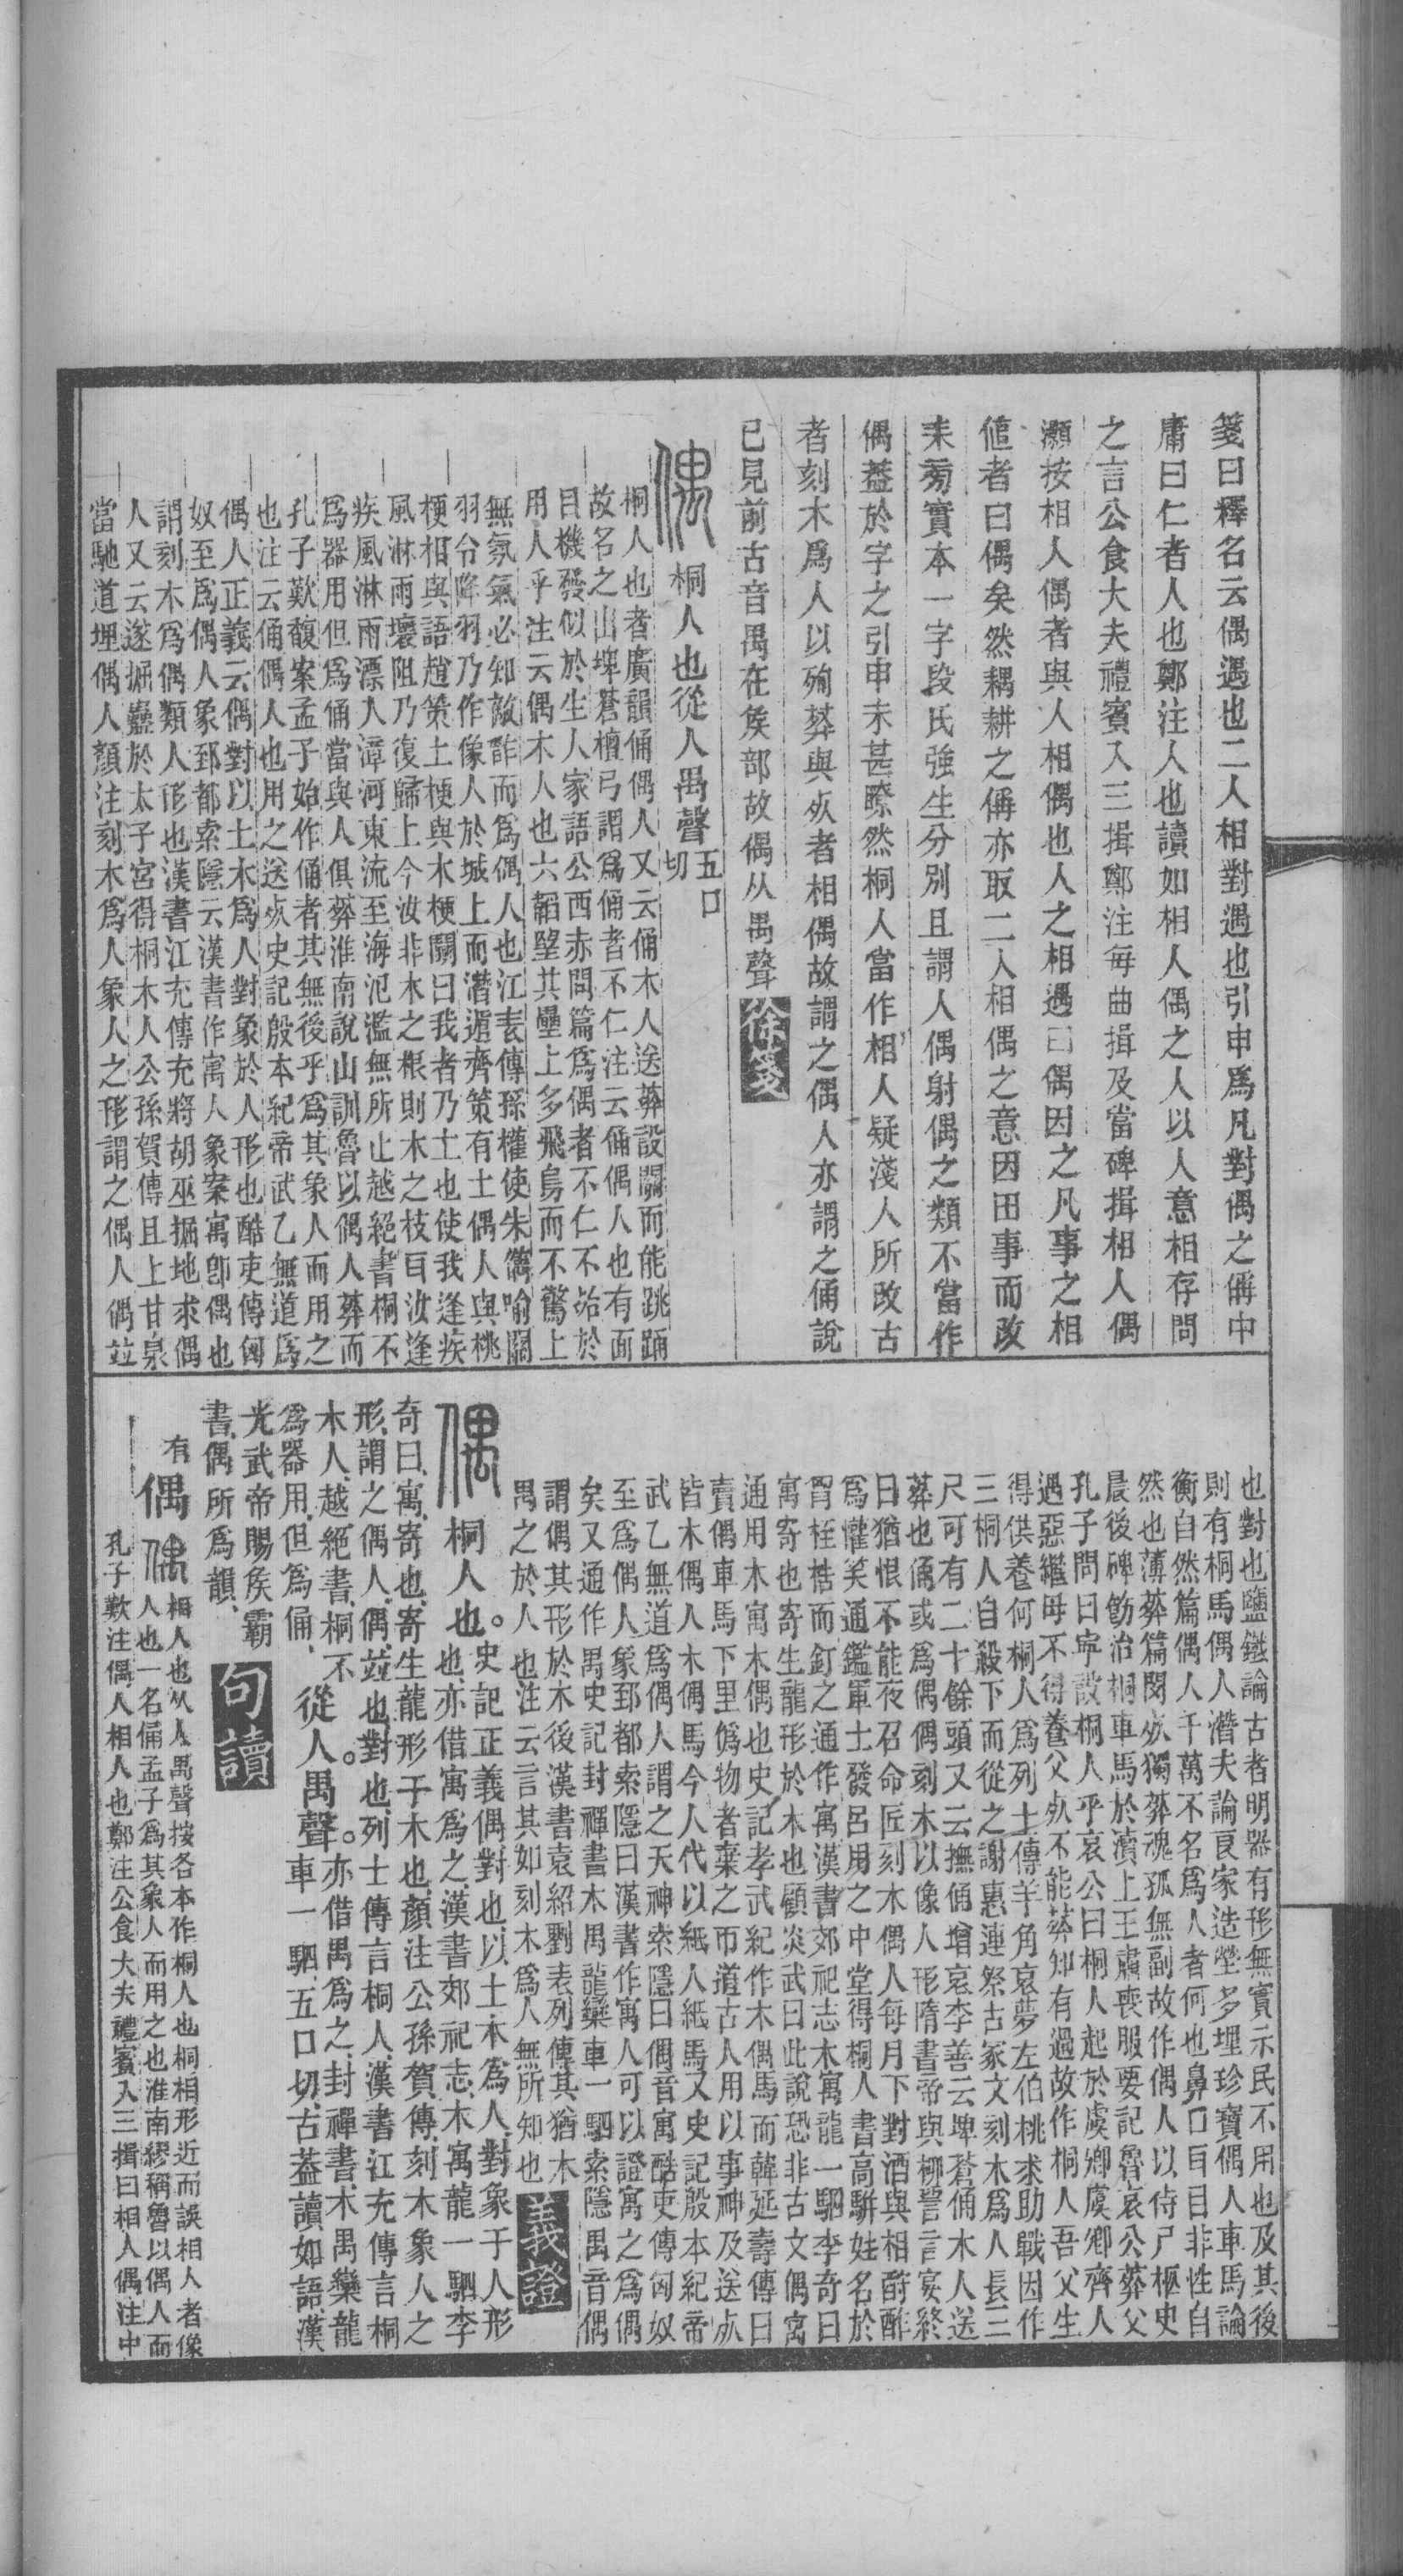 箋曰釋名云偶遇也二人相對遇也引申爲凡對偶之偁中
庸曰仁者人也鄭注人也讀如相人偶之人以人意相存問
之言公食大夫禮賓入三揖鄭注每曲揖及當碑揖相人偶
灝按相人偶者與人相偶也人之相遇曰偶因之凡事之相
値者曰偶矣然耦耕之偁亦取二人相偶之意因田事而改
耒旁實本一字段氏強生分別且謂人偶射偶之類不當作
偶葢於字之引申未甚瞭然桐人當作相人疑淺人所改古
者刻木爲人以殉葬與𣦸者相偶故謂之偶人亦謂之俑說
已見前古音禺在矦部故偶从禺聲 徐箋
偶 桐人也從人禺聲五口切
桐人也者廣韻俑偶人又云俑木人送葬設關而能跳踊
故名之出埤蒼檀弓謂爲俑者不仁注云俑偶人也有面
目機發似於生人家語公西赤問篇爲偶者不仁不殆於
用人乎注云偶木人也六韜壘其壘上多飛鳥而不驚上
無氛氣必知敵詐而爲偶人也江表傳孫權使朱儁喻關
羽令降羽乃作像人於城上而潛遁齊策有土偶人與桃
梗相與語趙策土梗與木梗鬭曰我者乃土也使我逢疾
風淋雨壞阻乃復歸上今汝非木之根則木之枝目汝逢
疾風淋雨漂入漳河東流至海氾濫無所止越絕書桐不
爲器用但爲俑當與人俱葬淮南說山訓魯以偶人葬而
孔子歎馥案孟子始作俑者其無後乎爲其象人而用之
也注云俑偶人也用之送𣦸史記殷本紀帝武乙無道爲
偶人正義云偶對以土木爲人對象於人形也酷吏傳匈
奴至爲偶人象郅都索隱云漢書作寓人象案寓卽偶也
謂刻木爲偶類人形也漢書江充傳充將胡巫掘地求偶
人又云遂掘蠱於太子宮得桐木人公孫賀傳且上甘泉
當馳道埋偶人顏注刻木爲人象人之形謂之偶人偶竝
也對也鹽鐵論古者明器有形無實示民不用也及其後
則有桐馬偶人潛夫論良家造塋多埋珍寶偶人車馬論
衡自然篇偶人千萬不名爲人者何也鼻口目非性自
然也薄葬篇閔𣦸獨葬魂孤無副故作偶人以侍尸柩史
晨後碑飭治桐車馬於瀆上王肅喪服要記魯哀公葬父
孔子問曰寧設桐人乎哀公曰桐人起於虞卿虞卿齊人
遇惡繼母不得養父𣦸不能葬知有過故作桐人吾父生
得供養何桐人爲列士傳羊角哀夢左伯桃求助戰因作
三桐人自殺下而從之謝惠連祭古冢文刻木爲人長三
尺可有二十餘頭又云撫俑增哀李善云埤蒼俑木人送
葬也俑或爲偶偶刻木以像人形隋書帝與柳䛒言宴終
日猶恨不能夜召命匠刻木偶人每月下對酒與相酧酢
爲懽笑通鑑軍士發呂用之中堂得桐人書高駢姓名於
胷桎梏而釘之通作寓漢書郊祀志木寓龍一駟李奇曰
寓寄也寄生龍形於木也顧炎武曰此說恐非古文偶寓
通用木寓木偶也史記孝武紀作木偶馬而韓延壽傳曰
賣偶車馬下里僞物者棄之市道古人用以事神及送𣦸
皆木偶人木偶馬今人代以紙人紙馬又史記殷本紀帝
武乙無道爲偶人謂之天神索隱曰偶音寓酷吏傳匈奴
至爲偶人象郅都索隱曰漢書作寓人可以證寓之爲偶
矣又通作禺史記封禪書木禺龍欒車一駟索隱禺音偶
謂偶其形於木後漢書袁紹劉表列傳其猶木
禺之於人也注云言其如刻木爲人無所知也 義證
偶 桐人也。史記正義偶對也、以土木爲人、對象于人形也、亦借寓爲之、漢書郊祀志、木寓龍一駟李
奇曰、寓、寄也、寄生龍形于木也、顏注公孫賀傳、刻木象人之
形、謂之偶人、偶、竝也、對也、列士傳言桐人、漢書江充傳言桐
木人、越絕書、桐不爲器用、但爲俑、 從人。禺聲。亦借禺爲之、封禪書、木禺欒龍車一駟、五口切、古葢讀如語、漢
光武帝賜矦霸書、偶所爲韻、 句讀
有
偶 偶 相人也从人禺聲按各本作桐人也桐相形近而誤相人者像
人也一名俑孟子爲其象人而用之也淮南繆稱魯以偶人而
孔子歎注偶人相人也鄭注公食大夫禮賓入三揖曰相人偶注中